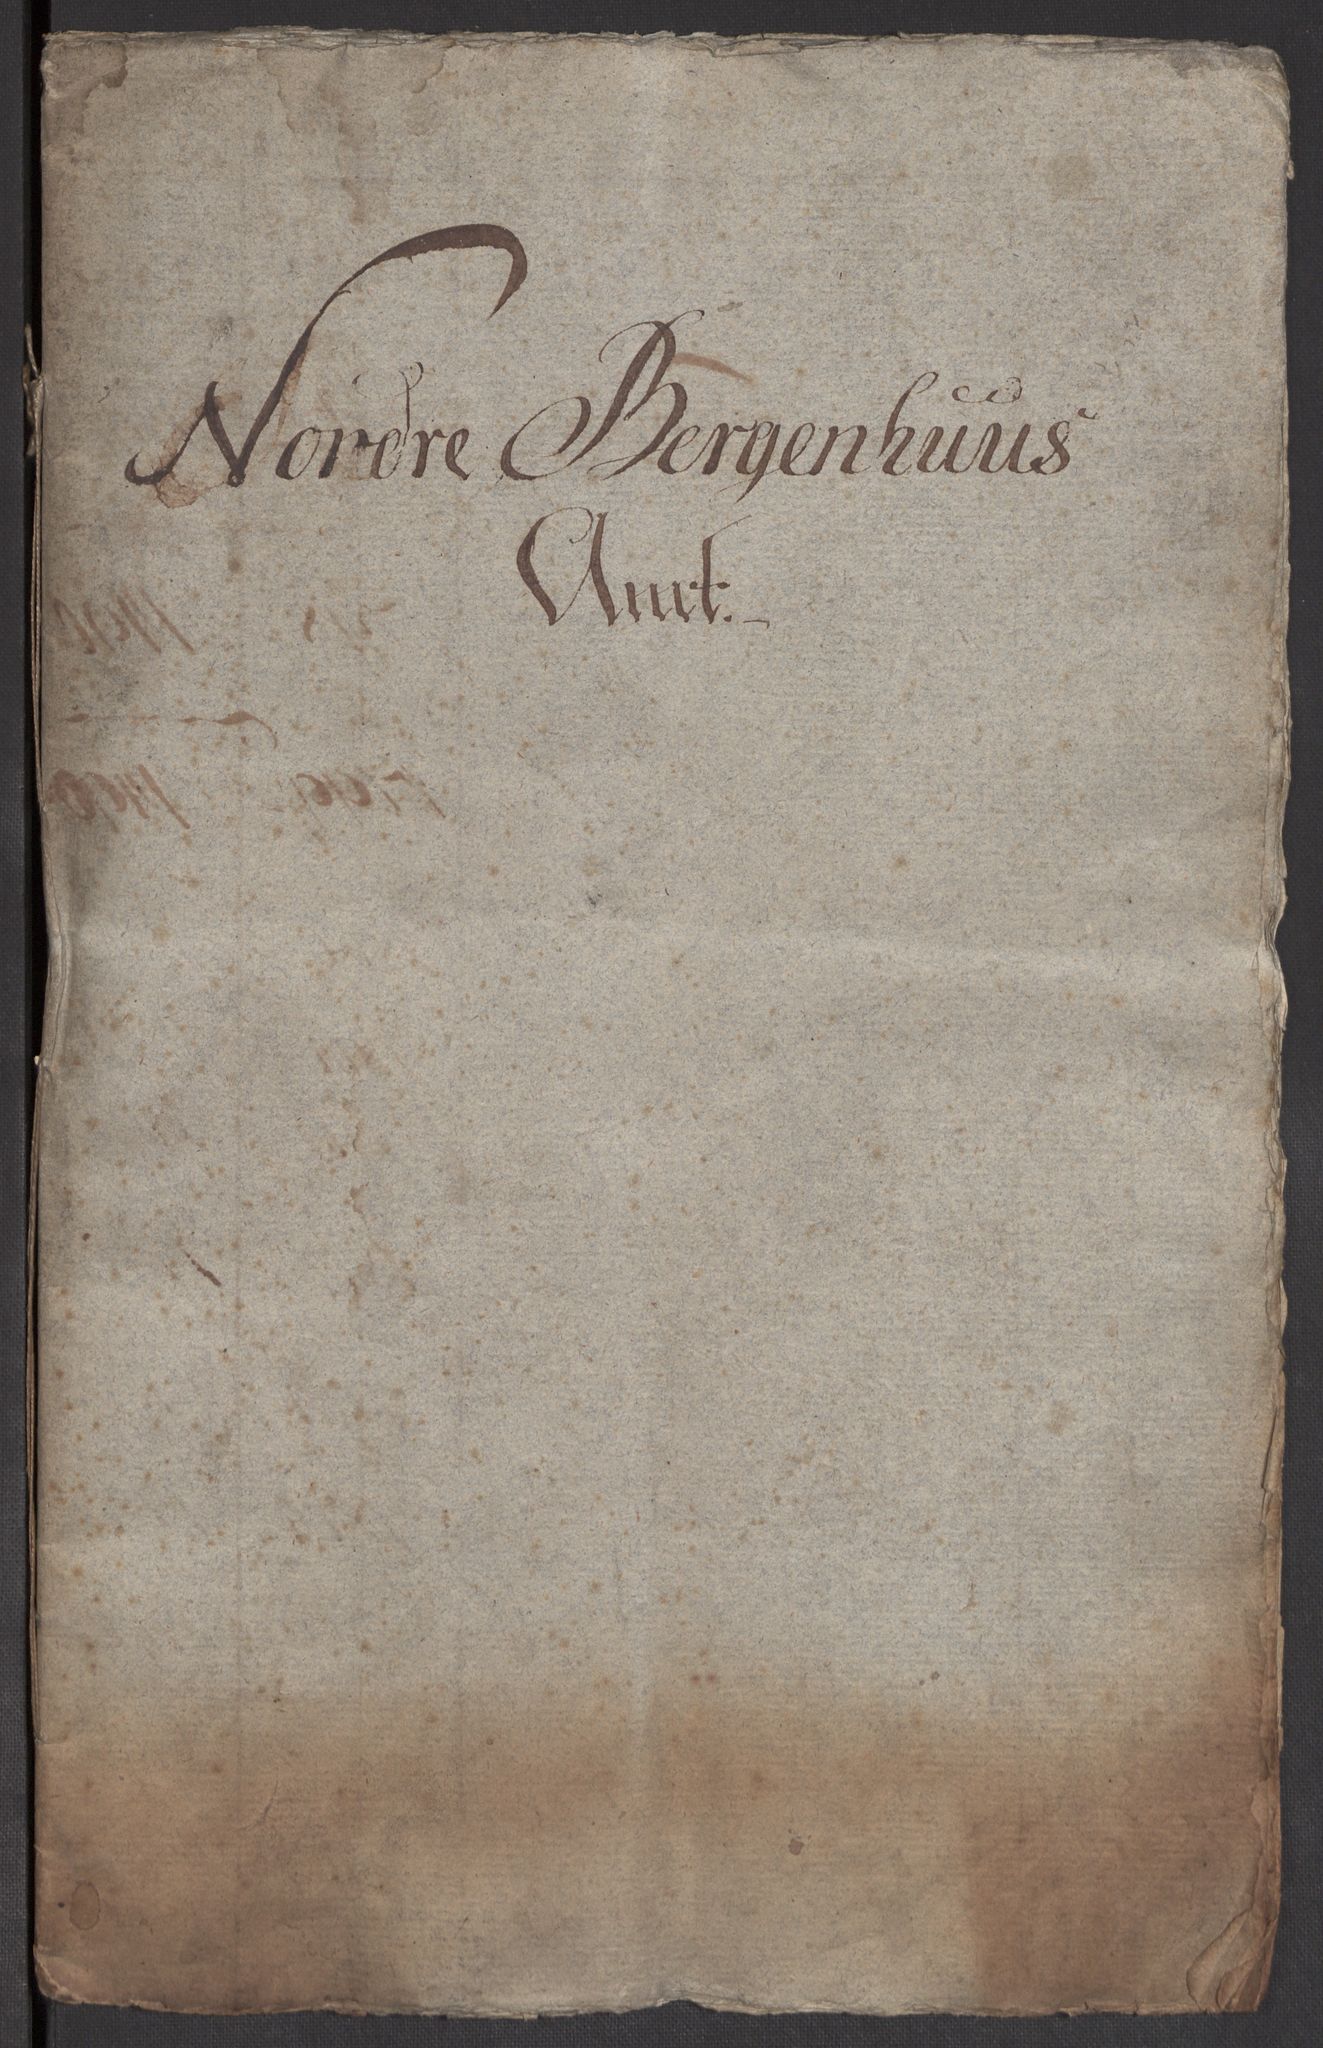 Nordre Bergenhuus
Amt.